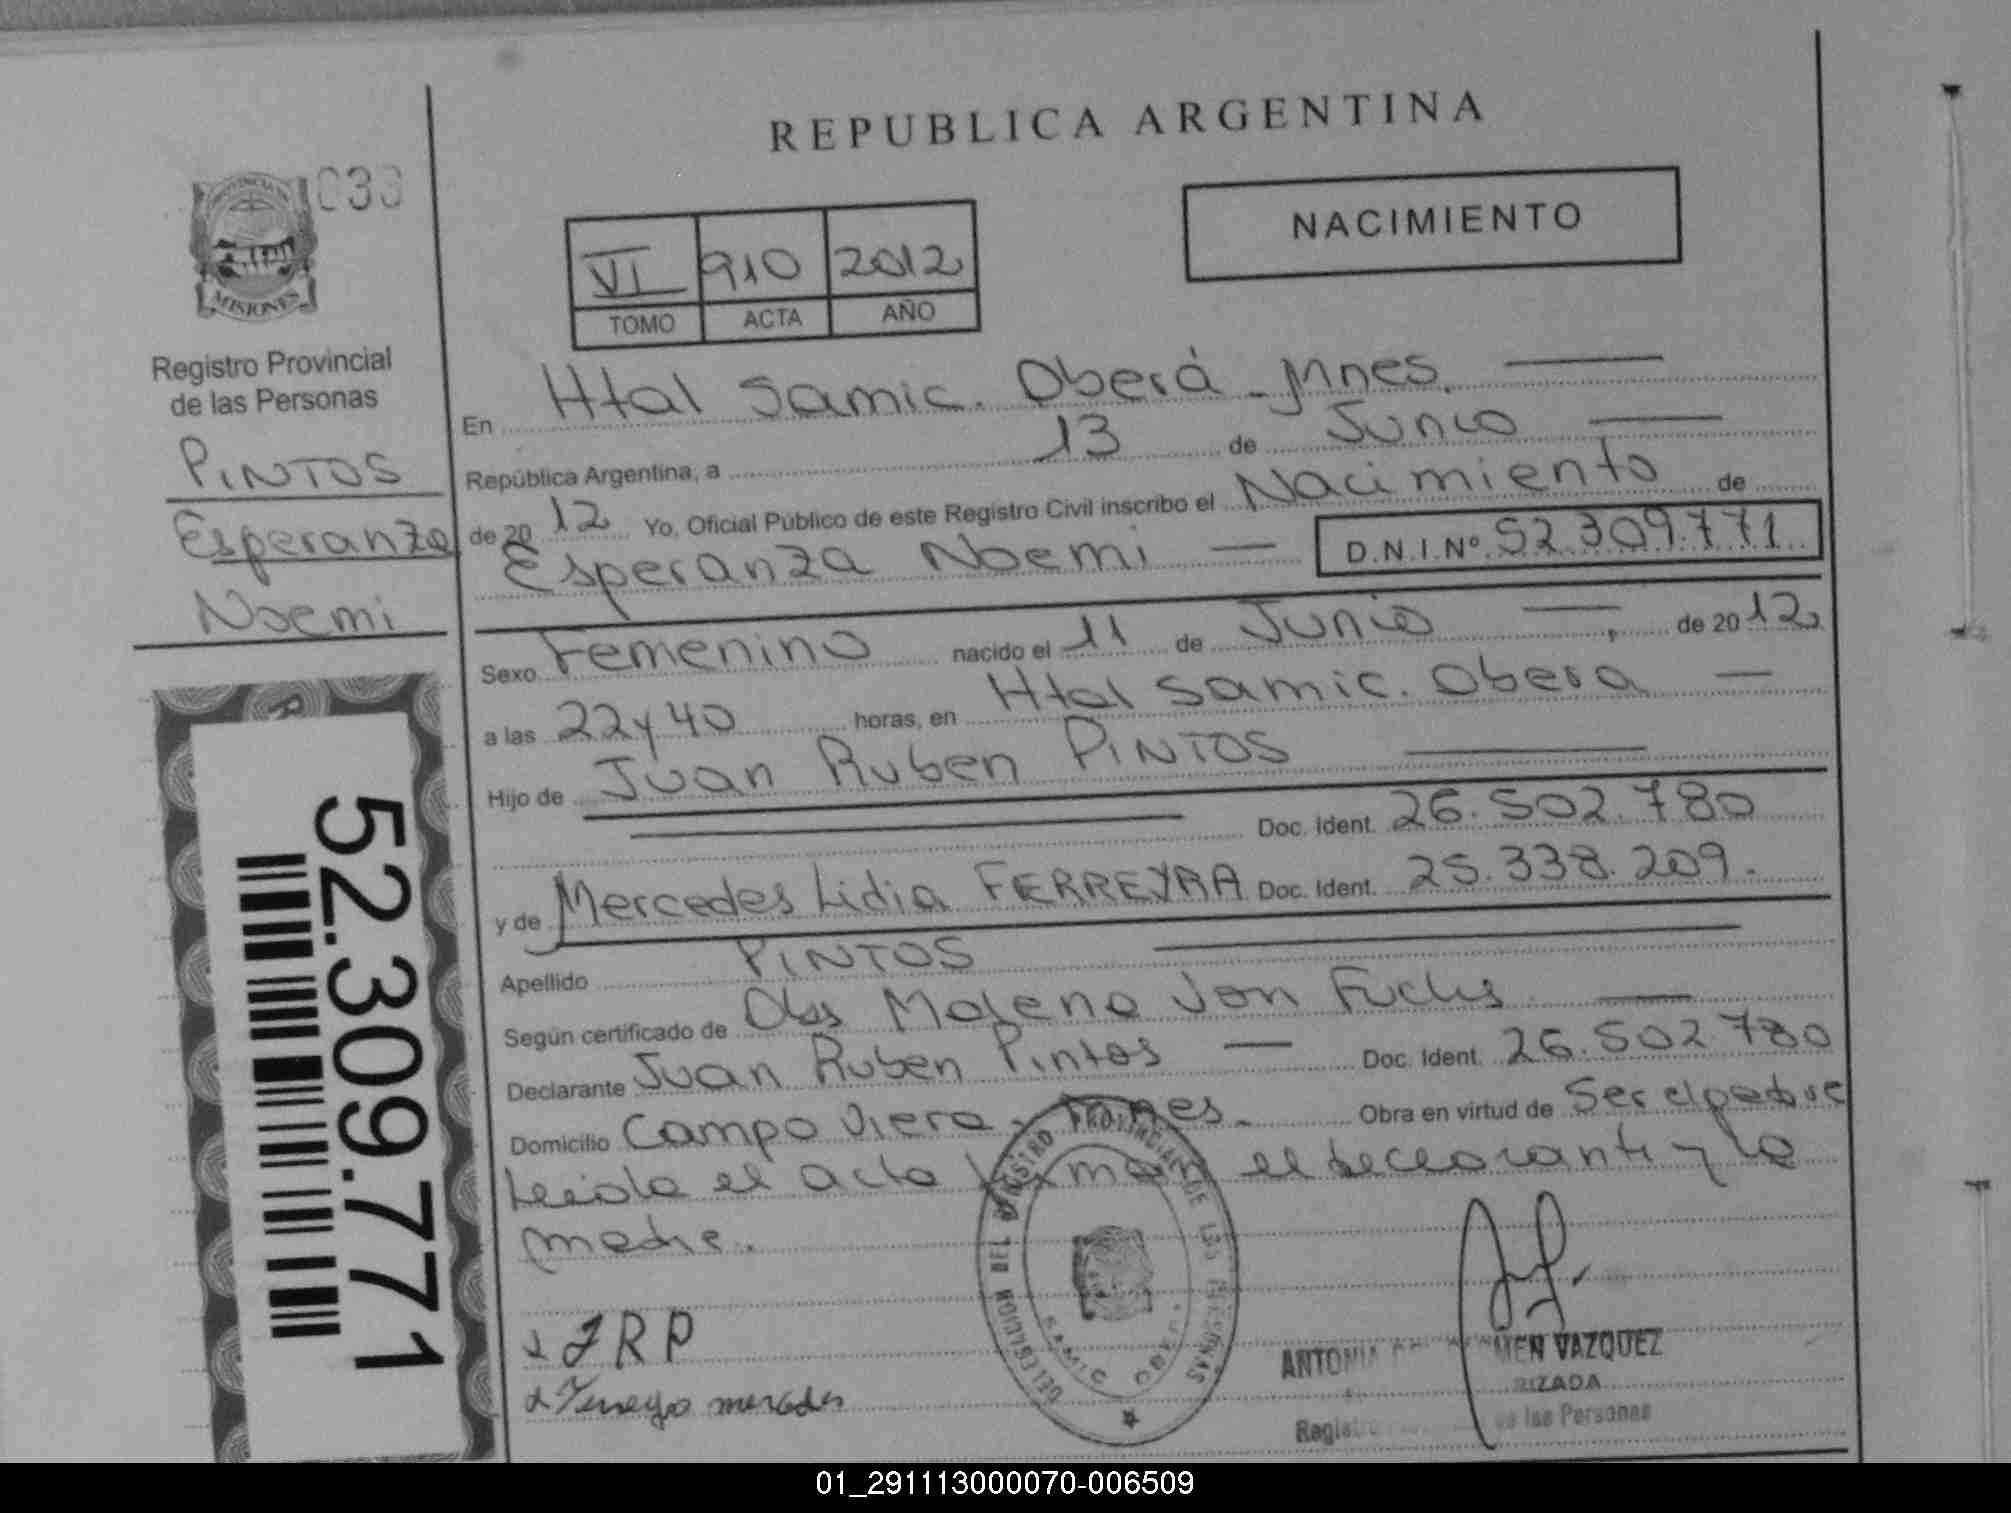 REPUBLICA ARGENTINA
033
NACIMIENTO
VI 910 2012
TOMO ACTA AÑO
PROVINCIA DE
MISIONES
Registro Provincial
de las Personas
PINTOS
Esperanza
Noemi
52.309.771
En Htal Samic. Oberá - Mnes.
República Argentina, a 13 de Junio
de 20 12 Yo, Oficial Público de este Registro Civil inscribo el Nacimiento de
Esperanza Noemi — D.N.I.Nº 52.309.771
Sexo Femenino nacido el 11 de Junio de 2012
a las 22 y 40 horas, en Htal Samic. Oberá —
Hijo de Juan Ruben PINTOS
Doc. Ident. 26.502.780
y de Mercedes Lidia FERREYRA Doc. Ident. 25.338.209.
Apellido PINTOS
Según certificado de Obs Malena Von Fuchs
Declarante Juan Ruben Pintos — Doc. Ident. 26.502.780
Domicilio Campo Viera - Mnes. Obra en virtud de Ser el padre
Leida el acta firman el declarante y la
madre.
DELEGACION DEL REGISTRO PROVINCIAL DE LAS PERSONAS
SAMIC OBERA
x JRP
x mercedes
ANTONIA VAZQUEZ
Registro de las Personas
01_291113000070-006509